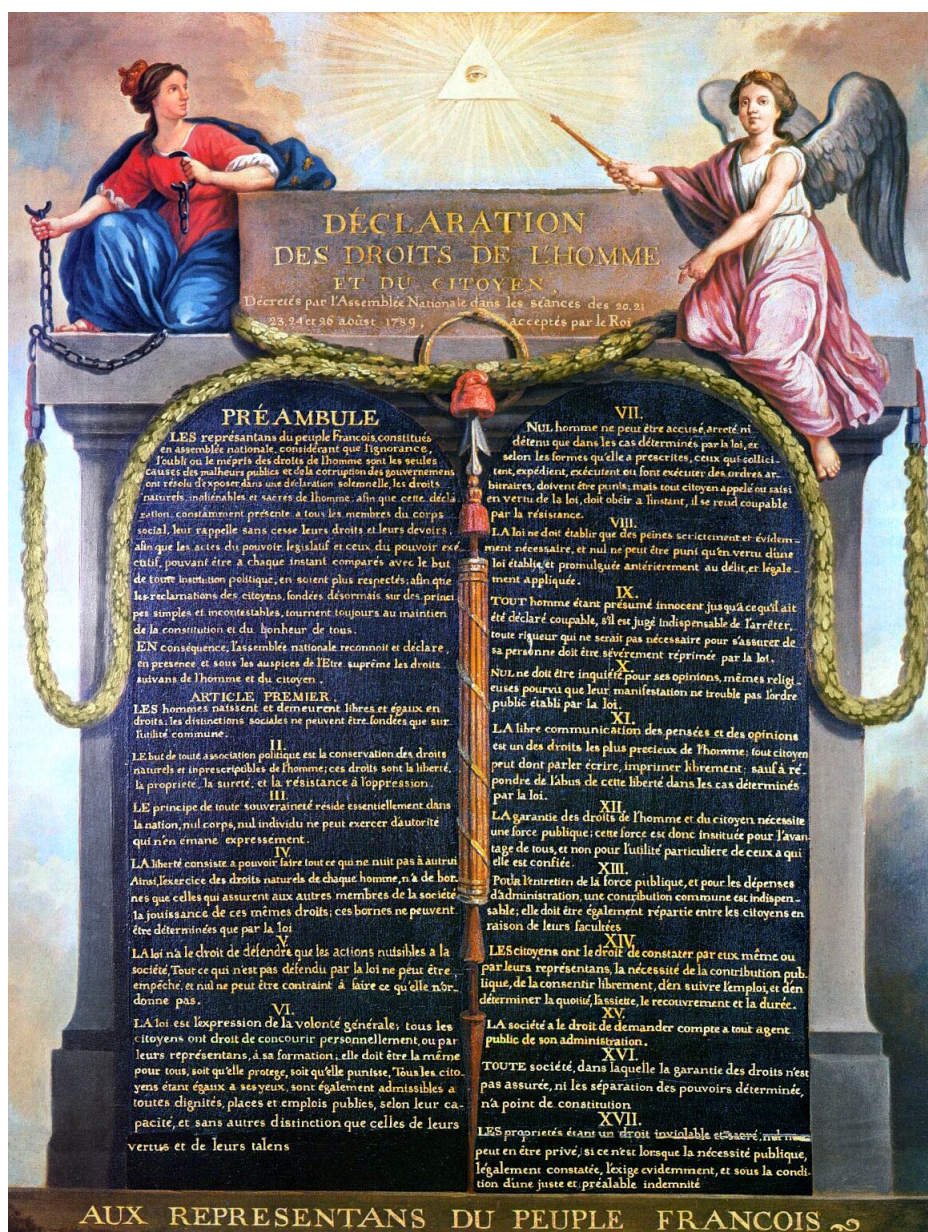 DÉCLARATION
DES DROITS DE L'HOMME
ET DU CITOYEN,
Décretés par l'Assemblée Nationale dans les séances des 20.21
23.24 et 26 aoûst 1789, acceptés par le Roi
PRÉAMBULE
LES représantans du peuple Francois, constitués
en assemblée nationale, considérant que l'ignorance,
l'oubli ou le mépris des droits de l'homme sont les seules
causes des malheurs publics et de la corruption des gouvernemens
ont résolu d'exposer dans une déclaration solemnelle, les droits
naturels, inaliénables et sacrés de l'homme; afin que cette décla_
ration, constamment présente a tous les membres du corps
social, leur rappelle sans cesse leurs droits et leurs devoirs;
afin que les actes du pouvoir législatif et ceux du pouvoir exé_
cutif, pouvant être a chaque instant comparés avec le but
de toute institution politique, en soient plus respectés; afin que
les reclamations des citoyens, fondées désormais sur des princi_
pes simples et incontestables, tournent toujours au maintien
de la constitution et du bonheur de tous.
EN conséquence, l'assemblée nationale reconnoit et déclare,
en presence et sous les auspices de l'Etre suprême les droits
suivans de l'homme et du citoyen.
ARTICLE PREMIER.
LES hommes naissent et demeurent libres et égaux en
droits; les distinctions sociales ne peuvent être fondées que sur
l'utilité commune.
II.
LE but de toute association politique est la conservation des droits
naturels et inprescriptibles de l'homme; ces droits sont la liberté,
la propriete, la sureté, et la résistance à l'oppression.
III.
LE principe de toute souveraineté réside essentiellement dans
la nation, nul corps, nul individu ne peut exercer d'autorité
qui n'en émane expressement.
IV.
LA liberté consiste a pouvoir faire tout ce qui ne nuit pas à autrui
Ainsi, l'exercice des droits naturels de chaque homme, n'a de bor_
nes que celles qui assurent aux autres membres de la société
la jouissance de ces mêmes droits; ces bornes ne peuvent
être déterminées que par la loi
V.
LA loi n'a le droit de défendre que les actions nuisibles a la
société, Tout ce qui n'est pas défendu par la loi ne peut être
empêché, et nul ne peut être contraint à faire ce qu'elle n'or_
donne pas.
VI.
LA loi est l'expression de la volonté générale; tous les
citoyens ont droit de concourir personnellement, ou par
leurs représentans, à sa formation; elle doit être la même
pour tous, soit qu'elle protege, soit qu'elle punisse, Tous les cito_
yens étant égaux a ses yeux, sont également admissibles a
toutes dignités, places et emplois publics, selon leur ca_
pacité, et sans autres distinction que celles de leurs
vertus et de leurs talens
VII.
NUL homme ne peut être accusé, arreté, ni
détenu que dans les cas déterminés par la loi, et
selon les formes qu'elle a prescrites, ceux qui sollici_
tent, expédient, exécutent ou font exécuter des ordres ar_
bitraires, doivent être punis; mais tout citoyen appelé ou saisi
en vertu de la loi, doit obéir a l'instant, il se rend coupable
par la résistance.
VIII.
LA loi ne doit établir que des peines strictement et évidem_
ment nécessaire, et nul ne peut être puni qu'en vertu d'une
loi établie, et promulguée antérierement au délit, et légale_
ment appliquée.
IX.
TOUT homme étant présumé innocent jusqu'à ce qu'il ait
été déclaré coupable, s'il est jugé indispensable de l'arrêter,
toute rigueur qui ne serait pas nécessaire pour s'assurer de
sa personne doit être sévèrement réprimée par la loi.
X.
NUL ne doit être inquiété pour ses opinions, mêmes religi_
euses pourvu que leur manifestation ne trouble pas l'ordre
public établi par la loi.
XI.
LA libre communication des pensées et des opinions
est un des droits les plus precieux de l'homme; tout citoyen
peut dont parler écrire, imprimer librement; sauf à ré_
pondre de l'abus de cette liberté dans les cas déterminés
par la loi.
XII.
LA garantie des droits de l'homme et du citoyen nécessite
une force publique; cette force est donc instituée pour l'avan_
tage de tous, et non pour l'utilité particuliere de ceux a qui
elle est confiée.
XIII.
POUR l'entretien de la force publique, et pour les dépenses
d'administration, une contribution commune est indispen_
sable; elle doit être également répartie entre les citoyens en
raison de leurs facultées
XIV.
LES citoyens ont le droit de constater par eux même ou
par leurs représentans, la nécessité de la contribution pub_
lique, de la consentir librement, d'en suivre l'emploi, et d'en
déterminer la quotité, l'assiette, le recouvrement et la durée.
XV.
LA société a le droit de demander compte a tout agent
public de son administration.
XVI.
TOUTE société, dans laquelle la garantie des droits n'est
pas assurée, ni les séparation des pouvoirs déterminée,
n'a point de constitution
XVII.
LES proprietés étant un droit inviolable et sacré, nul ne
peut en être privé, si ce n'est lorsque la nécessité publique,
légalement constatée, l'exige evidemment, et sous la condi_
tion d'une juste et préalable indemnité
AUX REPRESENTANS DU PEUPLE FRANCOIS